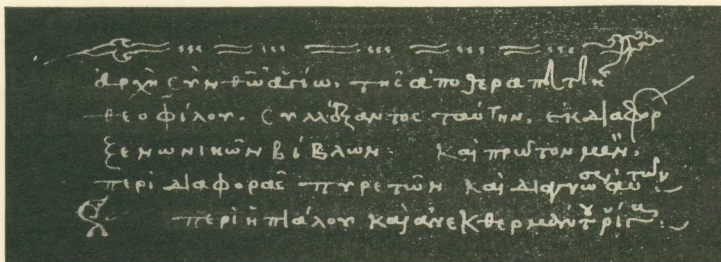 ἀρχὴ σὺν θῶ ἁγίω. τῆς ἀποθεραπευτικῆ
θεοφίλου. συλλέξαντος ταύτην, ἐκ διαφόρ
ξενωνικῶν βίβλων. Καὶ πρῶτον μὲν,
περὶ διαφορᾶς πυρετῶν καὶ διαγνώσεως αὐτῶν
περὶ ἠπιάλου καὶ ἀνεκθερμάντου